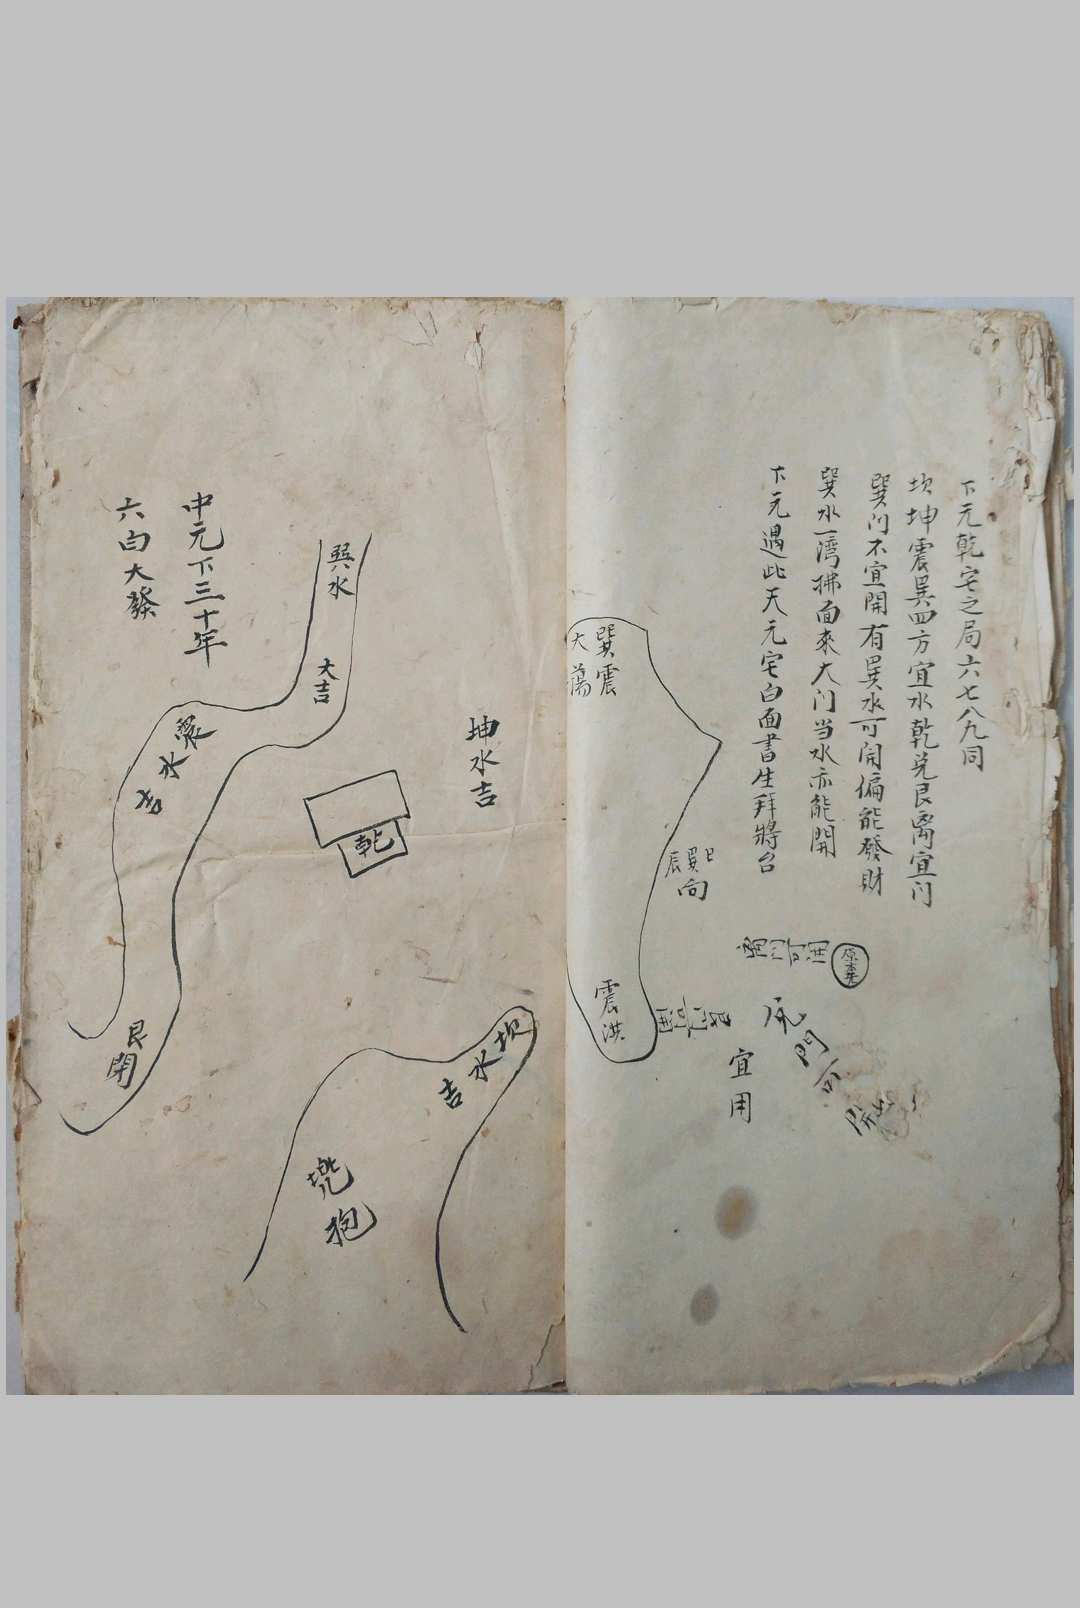 下元乾宅之局六七八九同
坎坤震巽四方宜水乾兑艮离宜门
巽门不宜開有巽水可開偏能發財
巽水一湾拂面來大门当水亦能開
下元遇此天元宅白面書生拜將台
巽震
大蕩
巳
巽向
辰
原本
离门可開
艮门可開
門可開
宜用
震
洪
坤水吉
巽水
大吉
乾
震水吉
艮開
坎水吉
兜抱
中元下三十年
六白大發